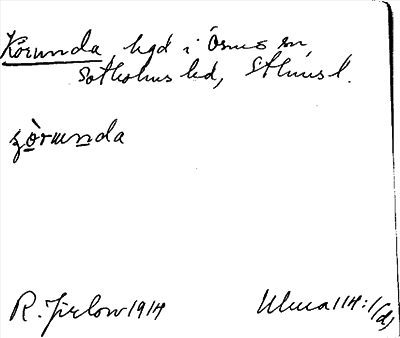 Körunda, hgd i Ösmo sn,
Sotholms hd, Sthms l.
R. Jirlow 1914
Ulma 114:1(d)